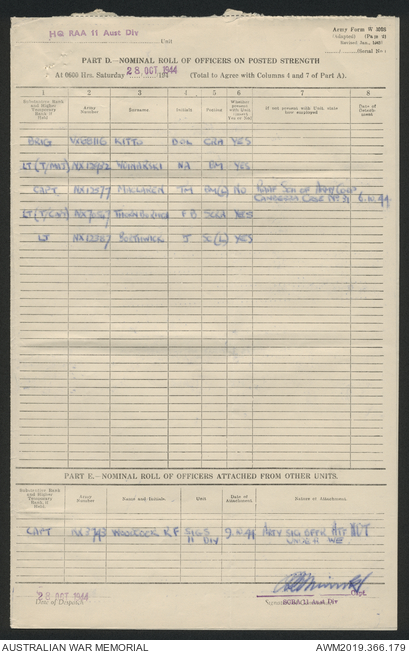 HQ RAA 11 Aust Div
Unit
Army Form W 3008
(Adapted)
Revised Jan., 1943
(Serial No.)
PART D.—NOMINAL ROLL OF OFFICERS ON POSTED STRENGTH
At 0600 Hrs. Saturday 28 OCT 1944 194 (Total to Agree with Columns 4 and 7 of Part A).
1 2 3 4 5 6 7 8
Substantive Rank and Higher Temporary Rank if Held
Army Number
Surname
Initials
Posting
Whether present with Unit (Insert Yes or No)
If not present with Unit, state how employed
Date of Detachment
BRIG KITTO CRA YES
LT (T/MAJ) NA BM YES
CAPT MACLAREN TM BM(L) NO RAAF Sch of Army Coop
Canberra Course No 31 6.10.44
LT (T/CAPT) FB YES
LT BORTHWICK J SC(L) YES
PART E.—NOMINAL ROLL OF OFFICERS ATTACHED FROM OTHER UNITS.
Substantive Rank and Higher Temporary Rank if Held
Army Number
Name and Initials
Unit
Date of Attachment
Nature of Attachment.
CAPT WOOLCOCK SIGS 9.10.44 ARTY SIG OFFR ATT NOT
11 DIV UNDER WE
28 OCT 1944
Date of Despatch
Capt
11 Aust Div
AUSTRALIAN WAR MEMORIAL
AWM2019.366.179